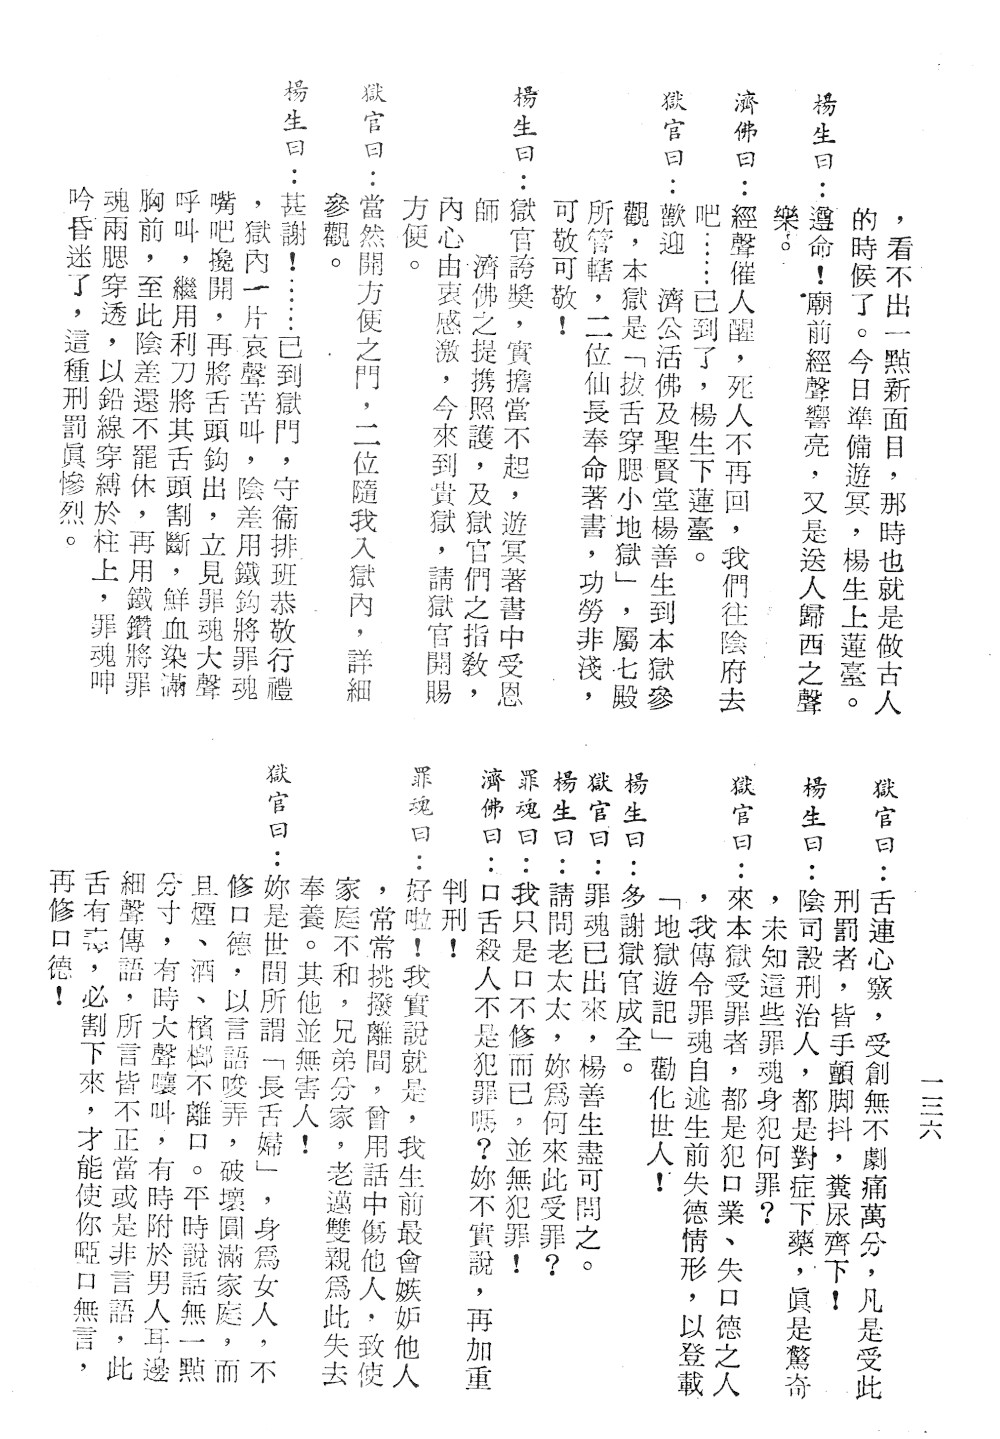 ，看不出一點新面目，那時也就是做古人
的時候了。今日準備遊冥，楊生上蓮臺。
楊生曰：遵命！廟前經聲響亮，又是送人歸西之聲
樂。
濟佛曰：經聲催人醒，死人不再回，我們往陰府去
吧……已到了，楊生下蓮臺。
獄官曰：歡迎　濟公活佛及聖賢堂楊善生到本獄參
觀，本獄是「拔舌穿腮小地獄」，屬七殿
所管轄，二位仙長奉命著書，功勞非淺，
可敬可敬！
楊生曰：獄官誇獎，實擔當不起，遊冥著書中受恩
師　濟佛之提携照護，及獄官們之指敎，
內心由衷感激，今來到貴獄，請獄官開賜
方便。
獄官曰：當然開方便之門，二位隨我入獄內，詳細
參觀。
楊生曰：甚謝！……已到獄門，守衞排班恭敬行禮
，獄內一片哀聲苦叫，陰差用鐵鈎將罪魂
嘴吧攙開，再將舌頭鈎出，立見罪魂大聲
呼叫，繼用利刀將其舌頭割斷，鮮血染滿
胸前，至此陰差還不罷休，再用鐵鑽將罪
魂兩腮穿透，以鉛線穿縛於柱上，罪魂呻
吟昏迷了，這種刑罰眞慘烈。
獄官曰：舌連心竅，受創無不劇痛萬分，凡是受此
刑罰者，皆手顫脚抖，糞尿齊下！
楊生曰：陰司設刑治人，都是對症下藥，眞是驚奇
，未知這些罪魂身犯何罪？
獄官曰：來本獄受罪者，都是犯口業、失口德之人
，我傳令罪魂自述生前失德情形，以登載
「地獄遊記」勸化世人！
楊生曰：多謝獄官成全。
獄官曰：罪魂已出來，楊善生盡可問之。
楊生曰：請問老太太，妳爲何來此受罪？
罪魂曰：我只是口不修而已，並無犯罪！
濟佛曰：口舌殺人不是犯罪嗎？妳不實說，再加重
判刑！
罪魂曰：好啦！我實說就是，我生前最會嫉妒他人
，常常挑撥離間，曾用話中傷他人，致使
家庭不和，兄弟分家，老邁雙親爲此失去
奉養。其他並無害人！
獄官曰：妳是世間所謂「長舌婦」，身爲女人，不
修口德，以言語唆弄，破壞圓滿家庭，而
且煙、酒、檳榔不離口。平時說話無一點
分寸，有時大聲嚷叫，有時附於男人耳邊
細聲傳語，所言皆不正當或是非言語，此
舌有毒，必割下來，才能使你啞口無言，
再修口德！
一三六